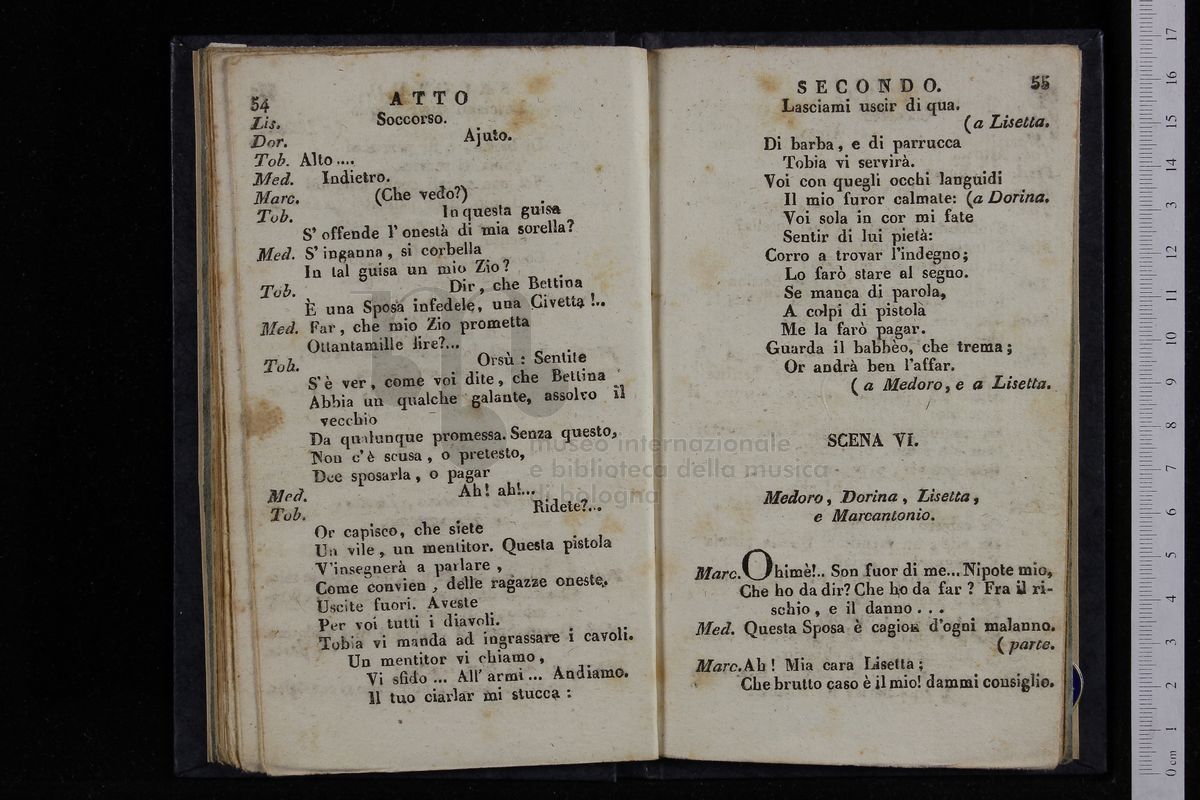 54
ATTO
Lis. Soccorso.
Dor. Ajuto.
Tob. Alto....
Med. Indietro.
Marc. (Che vedo?)
Tob. In questa guisa
S' offende l' onestà di mia sorella?
Med. S' inganna, si corbella
In tal guisa un mio Zio?
Tob. Dir, che Bettina
È una Sposa infedele, una Civetta!..
Med. Far, che mio Zio prometta
Ottantamille lire?...
Tob. Orsù: Sentite
S'è ver, come voi dite, che Bettina
Abbia un qualche galante, assolvo il
vecchio
Da qualunque promessa. Senza questo,
Non c'è scusa, o pretesto,
Dee sposarla, o pagar
Med. Ah! ah!...
Tob. Ridete?...
Or capisco, che siete
Un vile, un mentitor. Questa pistola
V'insegnerà a parlare,
Come convien, delle ragazze oneste.
Uscite fuori. Aveste
Per voi tutti i diavoli.
Tobia vi manda ad ingrassare i cavoli.
Un mentitor vi chiamo,
Vi sfido ... All' armi ... Andiamo.
Il tuo ciarlar mi stucca:
SECONDO.
55
Lasciami uscir di qua.
(a Lisetta.
Di barba, e di parrucca
Tobia vi servirà.
Voi con quegli occhi languidi
Il mio furor calmate: (a Dorina.
Voi sola in cor mi fate
Sentir di lui pietà:
Corro a trovar l'indegno;
Lo farò stare al segno.
Se manca di parola,
A colpi di pistola
Me la farò pagar.
Guarda il babbèo, che trema;
Or andrà ben l'affar.
(a Medoro, e a Lisetta.
SCENA VI.
Medoro, Dorina, Lisetta,
e Marcantonio.
Marc. Ohimè!.. Son fuor di me... Nipote mio,
Che ho da dir? Che ho da far? Fra il ri-
schio, e il danno...
Med. Questa Sposa è cagion d'ogni malanno.
(parte.
Marc. Ah! Mia cara Lisetta;
Che brutto caso è il mio! dammi consiglio.
museo internazionale
e biblioteca della musica
di bologna
0 cm 1 2 3 4 5 6 7 8 9 10 11 12 13 14 15 16 17